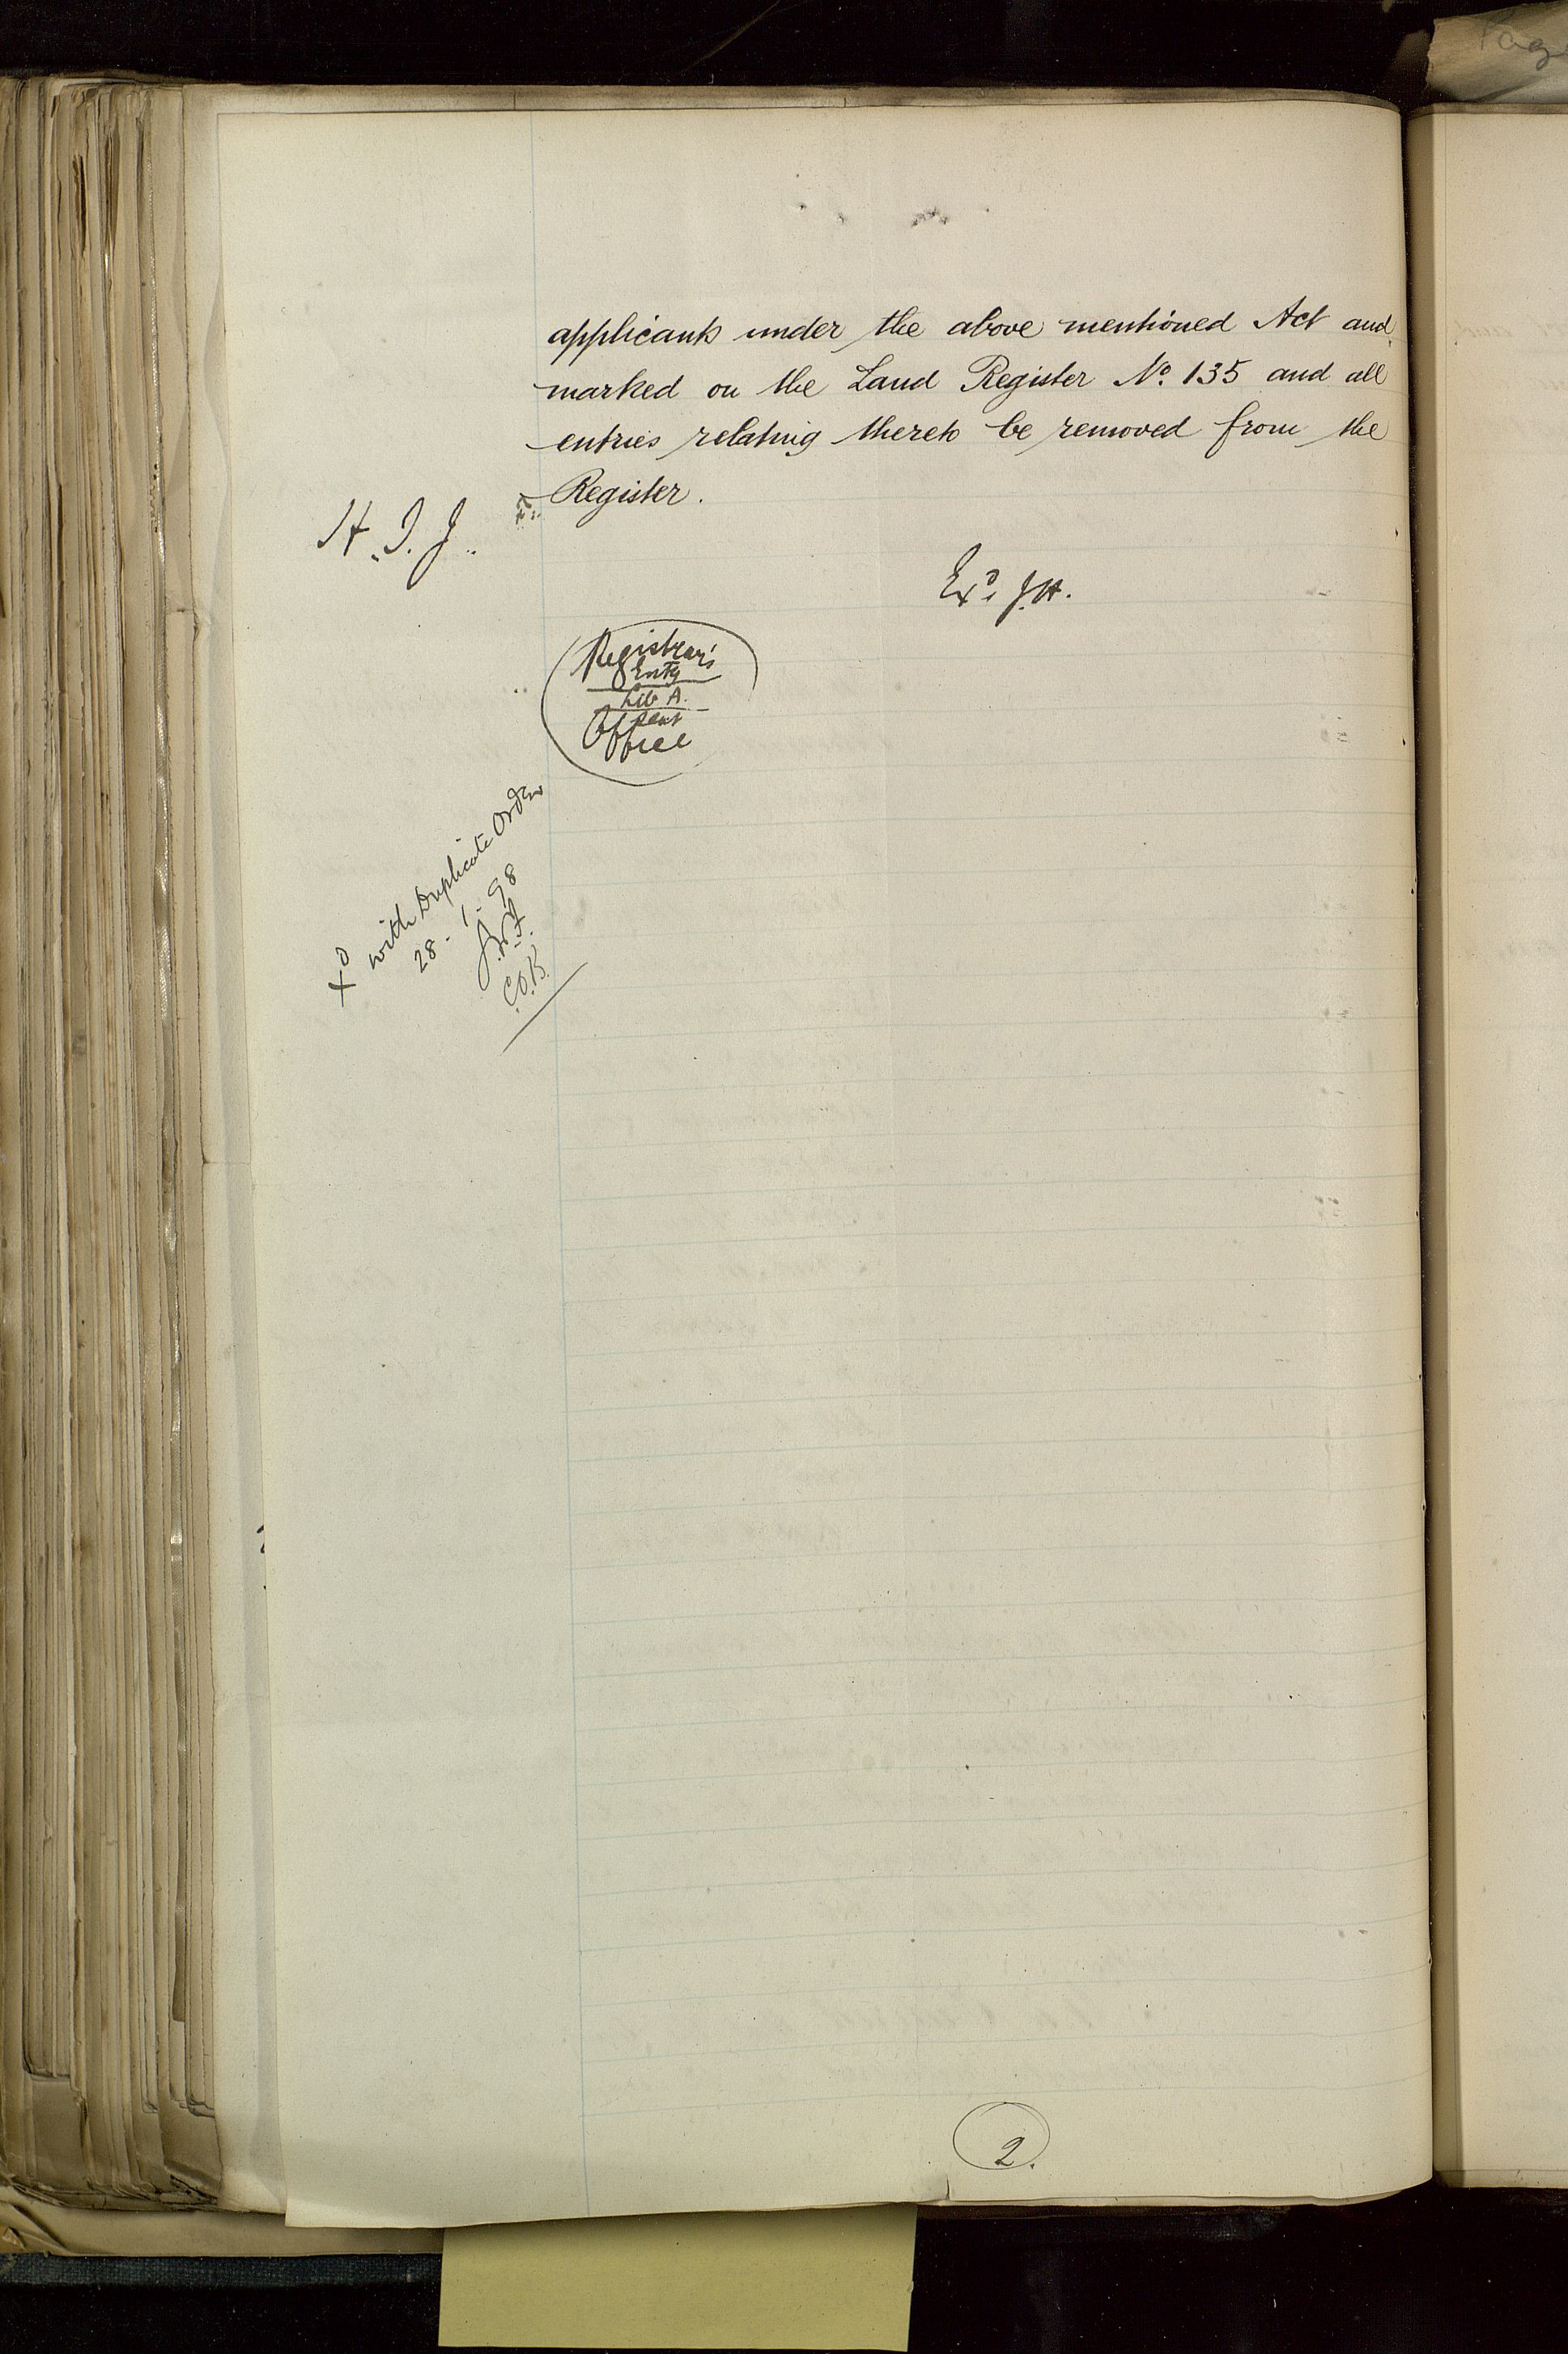 applicants under the above mentioned Act and
marked on the Land Register No. 135 and all
entries relating thereto be removed from the
Register.
H. I. J.
Exd. J.H.
Registrar's
Lib A.
Office
Xd with Duplicate Order
28 - 1 - 98
C.O.B.
2.
Pag